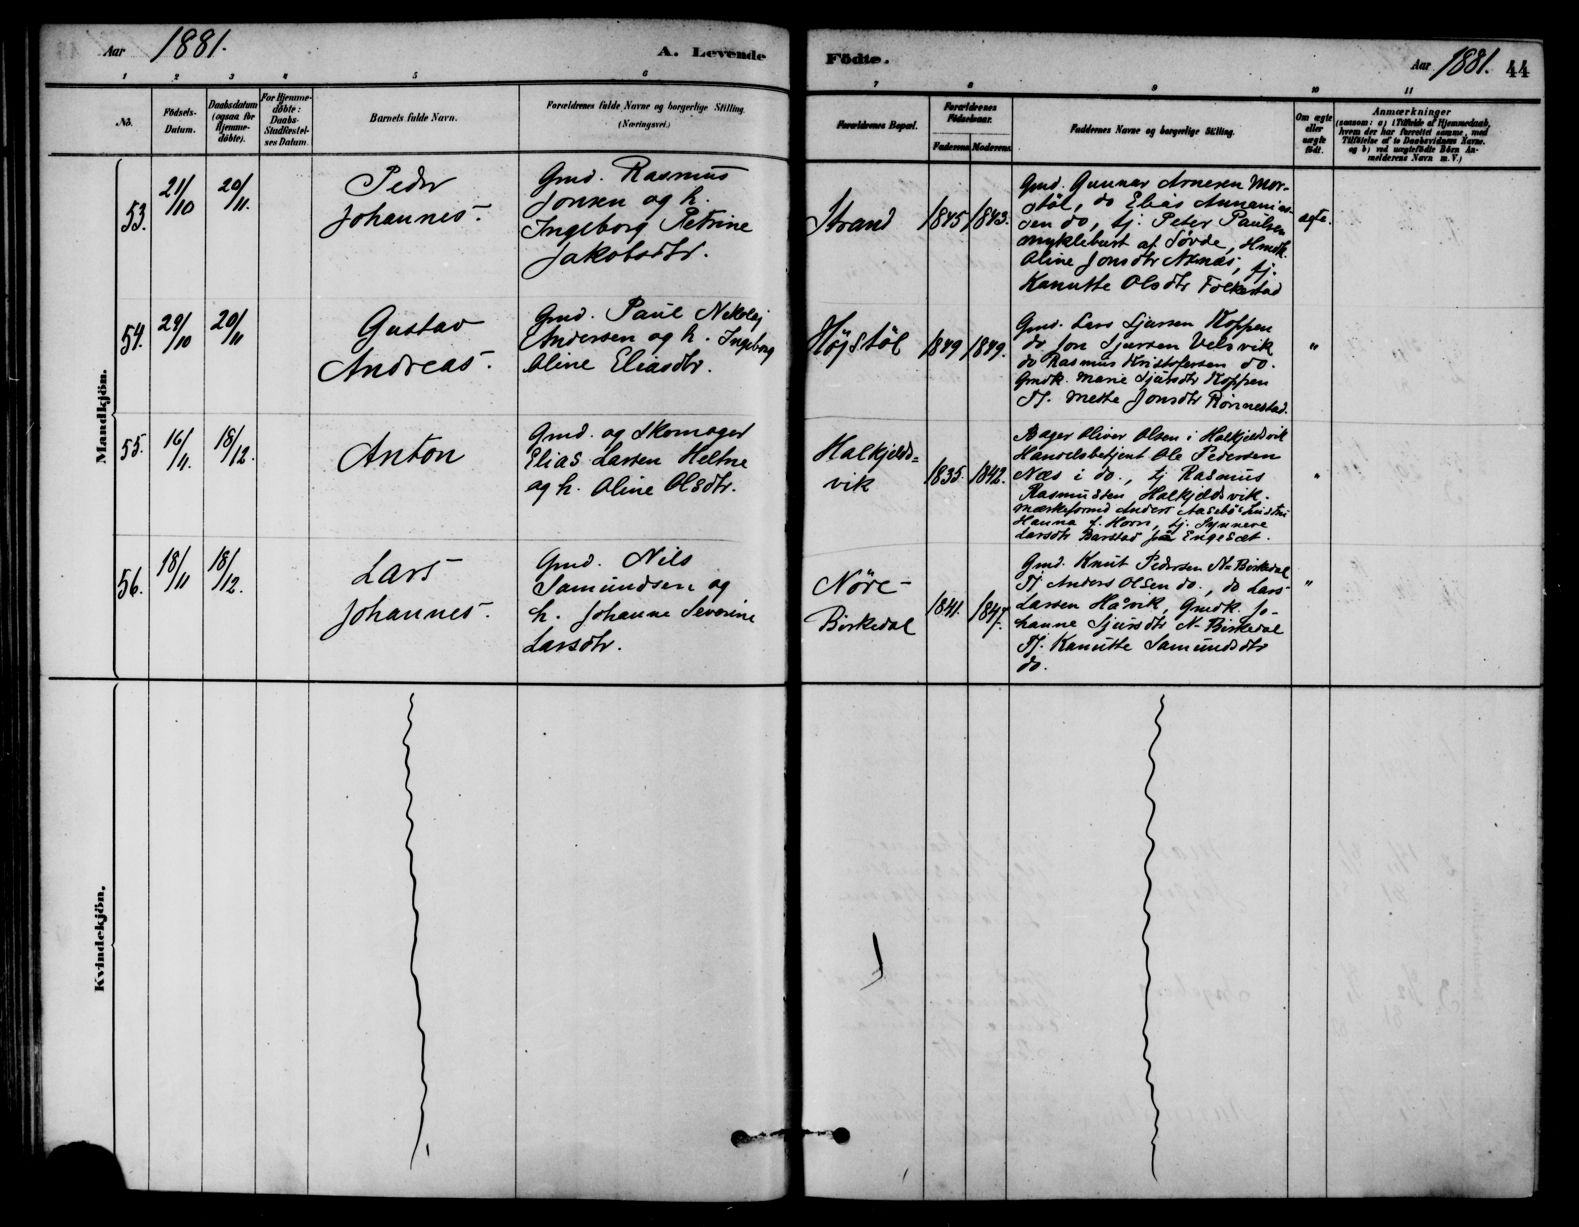 Aar 1881.
A. Levende
Födte.
Aar 1881. 44
1 2 3 4 5 6 7 8 9 10 11
No.
Födsels-
Datum.
Daabsdatum
(ogsaa for
Hjemme-
döbte).
For Hjemme-
döbte:
Daabs-
Stadfæstel-
ses Datum.
Barnets fulde Navn.
Forældrenes fulde Navne og borgerlige Stilling.
(Næringsvei.)
Forældrenes Bopæl.
Forældrenes
Födselsaar.
Faderens
Moderens
Faddernes Navne og borgerlige Stilling.
Om ægte
eller
uægte
födt.
Anmærkninger
(saasom: a) i Tilfælde af Hjemmedaab,
hvem der har forrettet samme, med
Tilföielse af to Daabsvidners Navne.
og b) ved uægtefödte Börn An-
melderens Navn m. V.)
Mandkjön.
53.
21/10
20/11.
Peder
Johannes.
Gmd. Rasmus
Jonsen og h.
Ingeborg Petrine
Jakobsdtr.
Strand
1845
1843.
Gmd. Gunnar Arnesen Mor-
støl, do Elias Annanias-
sen do, tj. Peter Paulsen
Myklebust af Søvde, Hmdk.
Oline Jonsdtr Aknæs, tj.
Kanutte Olsdtr Folkestad
ægte.
54.
29/10
20/11
Gustav
Andreas.
Gmd. Paul Nikolaj
Andersen og h. Ingeborg
Oline Eliasdtr.
Højstøl
1849
1849.
Gmd. Lars Sjursen Koppen
do Jon Sjursen Velsvik
do Rasmus Kristofersen do.
Gmdk. Marie Sjursdtr Koppen
Pj. Mette Jonsdtr Rønnestad.
"
55.
16/11.
18/12.
Anton
Gmd. og Skomager
Elias Larsen Heltne
og h. Oline Olsdtr.
Halkjelds-
vik
1835.
1842.
Bager Oliver Olsen i Halkjeldsvik
Handelsbetjent Ole Pedersen
Næs i do., tj Rasmus
Rasmussen Halkjeldsvik.
Hanna f. Horn, tj. Synneve
Larsdtr Barstad paa Engeset.
"
56.
18/11
18/12.
Lars
Johannes.
Gmd. Nils
Samundsen og
h. Johanne Severine
Larsdtr.
Nøre-
Birkedal
1841.
1847.
Gmd. Knut Pedersen N. Birkedal
Pj Anders Olsen do., do Lars
Larsen Håvik, Gmdk. Jo-
hanne Sjursdtr N. Birkedal
Pj. Kanutte Samundsdtr
do.
"
Kvindekjön.